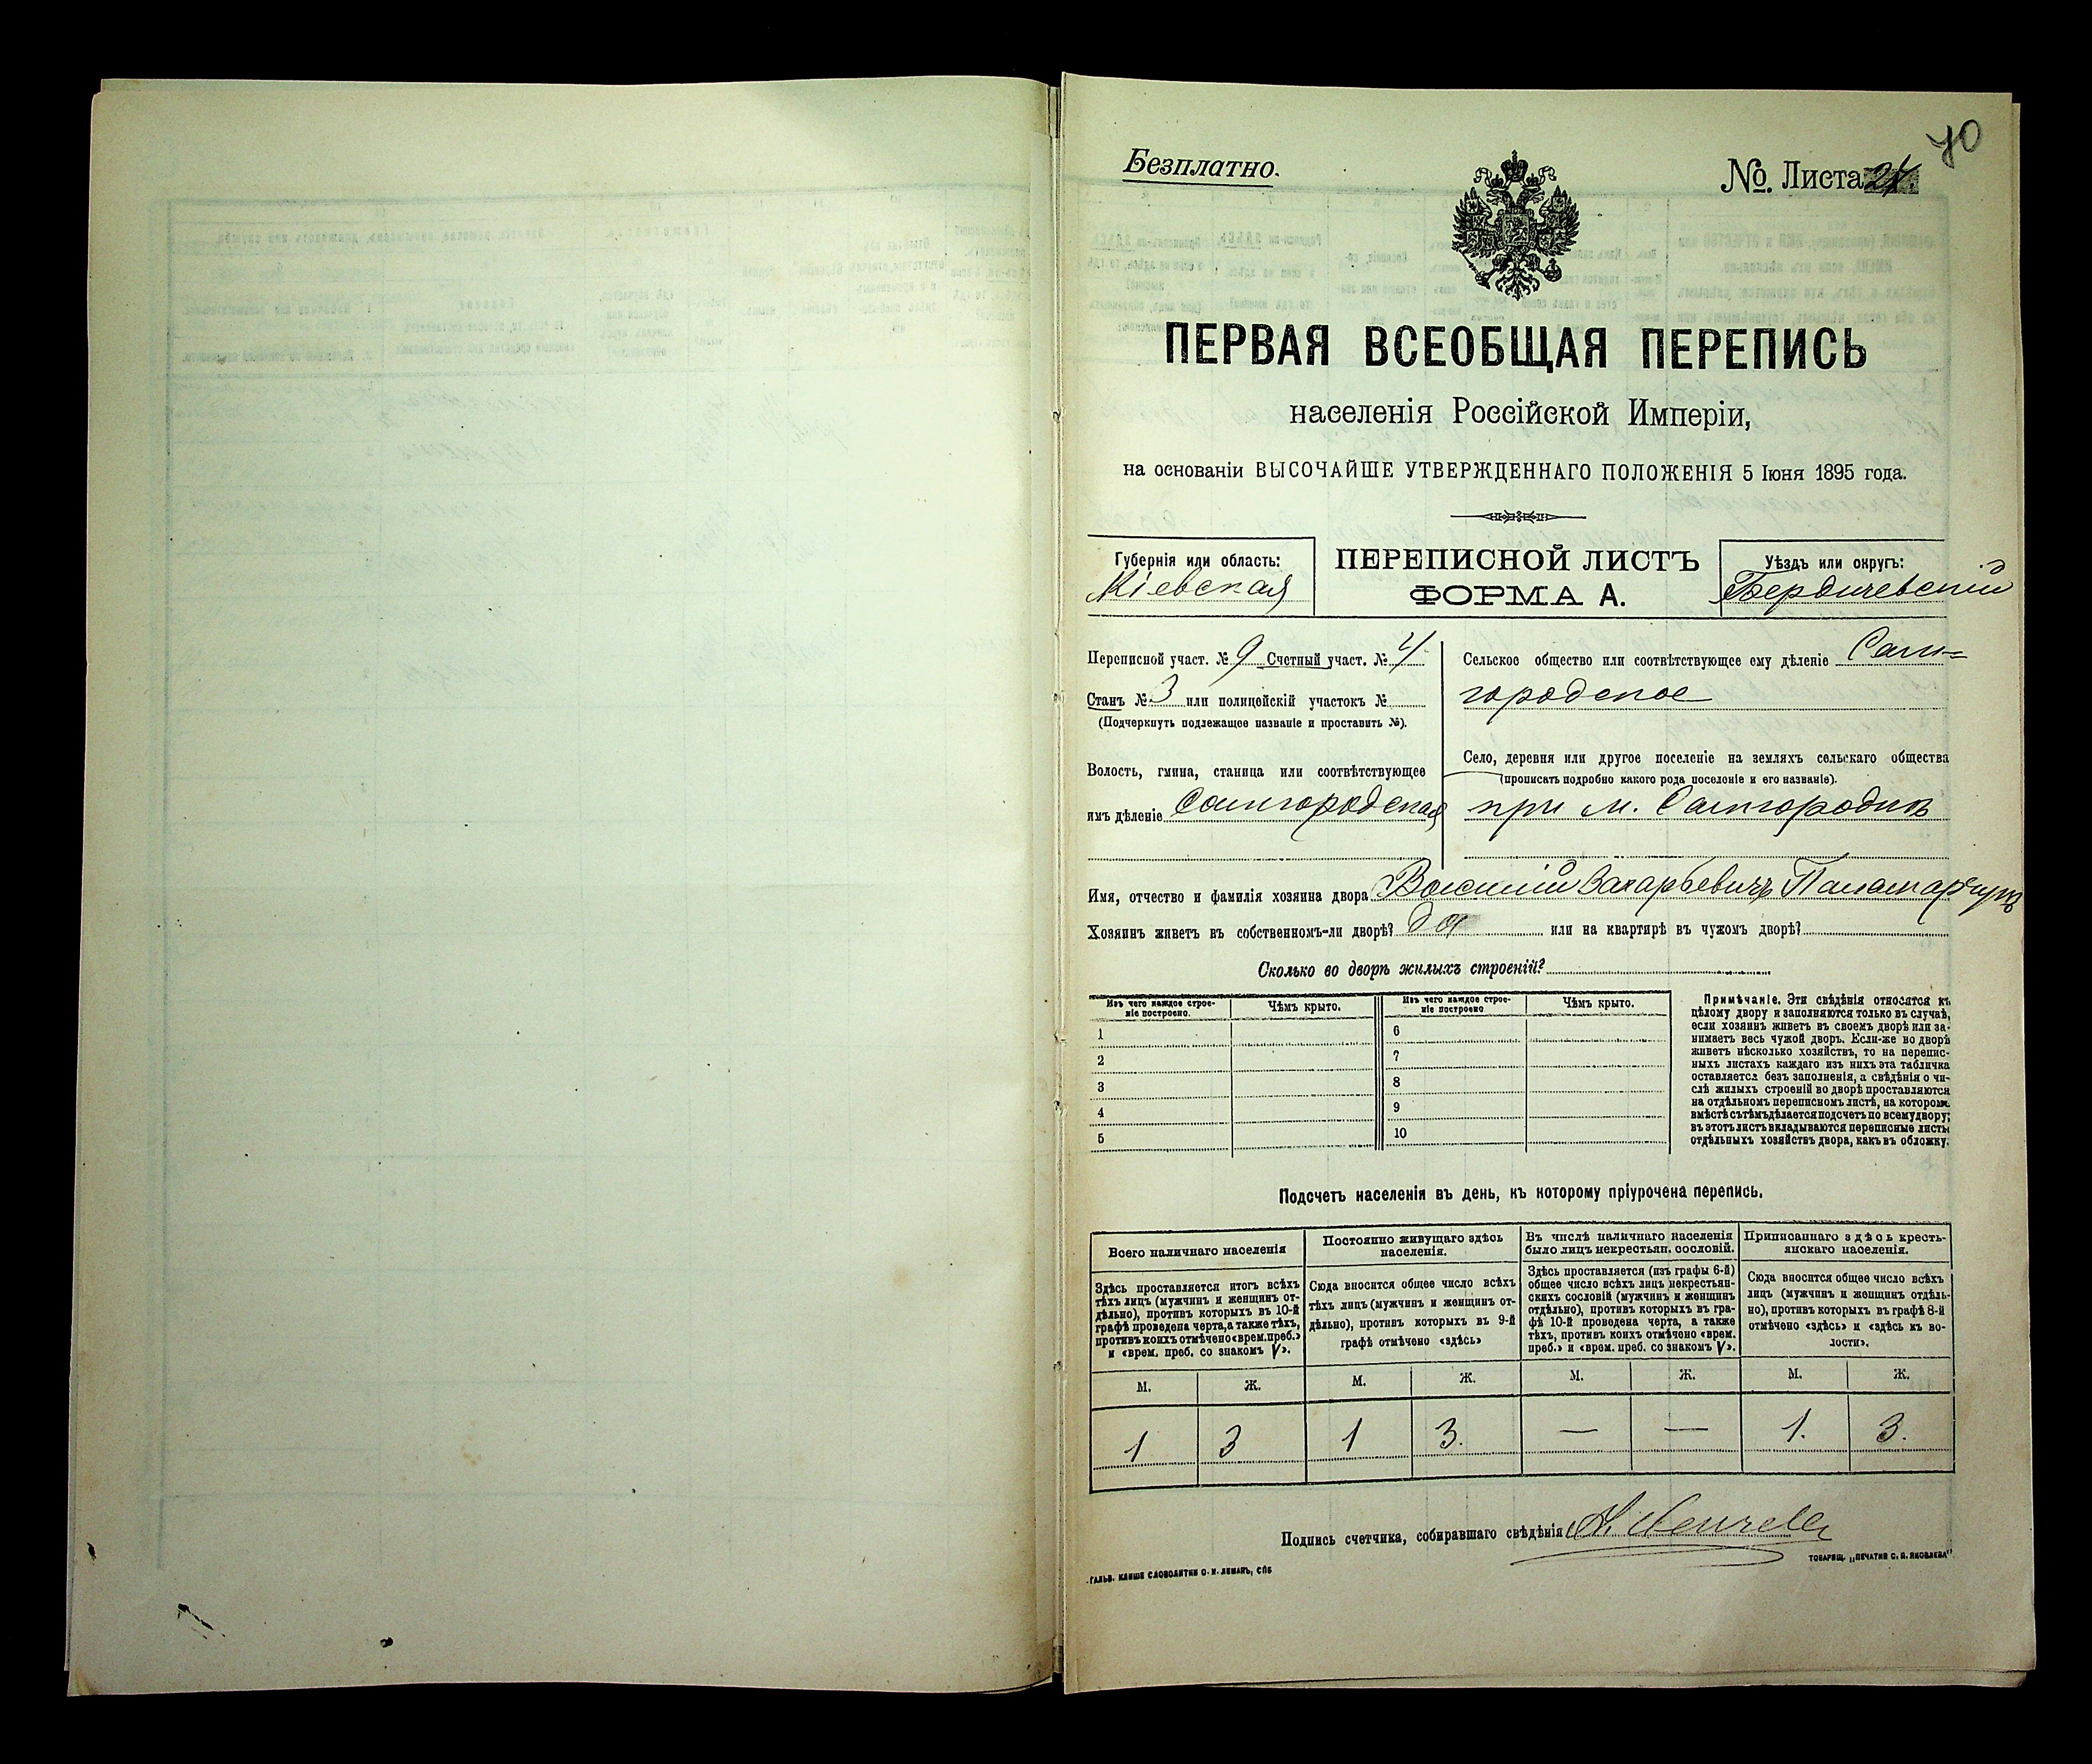 40
Безплатно.
№. Листа 24.
ПЕРВАЯ ВСЕОБЩАЯ ПЕРЕПИСЬ
населенія Россійской Имперіи,
на основаніи ВЫСОЧАЙШЕ УТВЕРЖДЕННАГО ПОЛОЖЕНІЯ 5 Іюня 1895 года.
Губернія или область:
Кіевская
ПЕРЕПИСНОЙ ЛИСТЪ
ФОРМА А.
Уѣздъ или округъ:
Бердичевскій
Переписной участ. № 9 Счетный участ. № 4
Станъ № 3 или полицейскій участокъ №
(Подчеркнуть подлежащее названіе и проставить №).
Волость, гмина, станица или соотвѣтствующее
имъ дѣленіе Самгородская
Сельское общество или соотвѣтствующее ему дѣленіе Сам=
городское
Село, деревня или другое поселеніе на земляхъ сельскаго общества
(прописать подробно какого рода поселеніе и его названіе).
при м. Самгородкѣ
Имя, отчество и фамилія хозяина двора Василій Захарьевичъ Паламарчукъ
Хозяинъ живетъ въ собственномъ-ли дворѣ? да или на квартирѣ въ чужомъ дворѣ?
Сколько во дворѣ жилыхъ строеній?
Изъ чего каждое строе-
ніе построено.
Чѣмъ крыто.
Изъ чего каждое строе-
ніе построено
Чѣмъ крыто.
1
6
2
7
3
8
4
9
5
10
Примѣчаніе. Эти свѣдѣнія относятся къ
цѣлому двору и заполняются только въ случаѣ,
если хозяинъ живетъ въ своемъ дворѣ или за-
нимаетъ весь чужой дворъ. Если-же во дворѣ
живетъ нѣсколько хозяйствъ, то на перепис-
ныхъ листахъ каждаго изъ нихъ эта табличка
оставляется безъ заполненія, а свѣдѣнія о чи-
слѣ жилыхъ строеній во дворѣ проставляются
на отдѣльномъ переписномъ листѣ, на которомъ
вмѣстѣ съ тѣмъ дѣлается подсчетъ по всему двору;
въ этотъ листъ вкладываются переписные листы
отдѣльныхъ хозяйствъ двора, какъ въ обложку.
Подсчетъ населенія въ день, къ которому пріурочена перепись.
Всего наличнаго населенія
Постоянно живущаго здѣсь
населенія.
Въ числѣ наличнаго населенія
было лицъ некрестьян. сословій.
Приписаннаго здѣсь кресть-
янскаго населенія.
Здѣсь проставляется итогъ всѣхъ
тѣхъ лицъ (мужчинъ и женщинъ от-
дѣльно), противъ которыхъ въ 10-й
графѣ проведена черта, а также тѣхъ,
противъ коихъ отмѣчено «врем. преб.»
и «врем. преб. со знакомъ V».
Сюда вносится общее число всѣхъ
тѣхъ лицъ (мужчинъ и женщинъ от-
дѣльно), противъ которыхъ въ 9-й
графѣ отмѣчено «здѣсь»
Здѣсь проставляется (изъ графы 6-й)
общее число всѣхъ лицъ некрестьян-
скихъ сословій (мужчинъ и женщинъ
отдѣльно), противъ которыхъ въ гра-
фѣ 10-й проведена черта, а также
тѣхъ, противъ коихъ отмѣчено «врем.
преб.» и «врем. преб. со знакомъ V».
Сюда вносится общее число всѣхъ
лицъ (мужчинъ и женщинъ отдѣль-
но), противъ которыхъ въ графѣ 8-й
отмѣчено «здѣсь» и «здѣсь къ во-
лости».
М. Ж. М. Ж. М. Ж. М. Ж.
1 3 1 3. — — 1. 3.
Подпись счетчика, собиравшаго свѣдѣнія
ГАЛЬВ. КЛИШЕ СЛОВОЛИТНИ О. И. ЛЕМАНЪ, СПБ
ТОВАРИЩ. „ПЕЧАТНЯ С. П. ЯКОВЛЕВА"